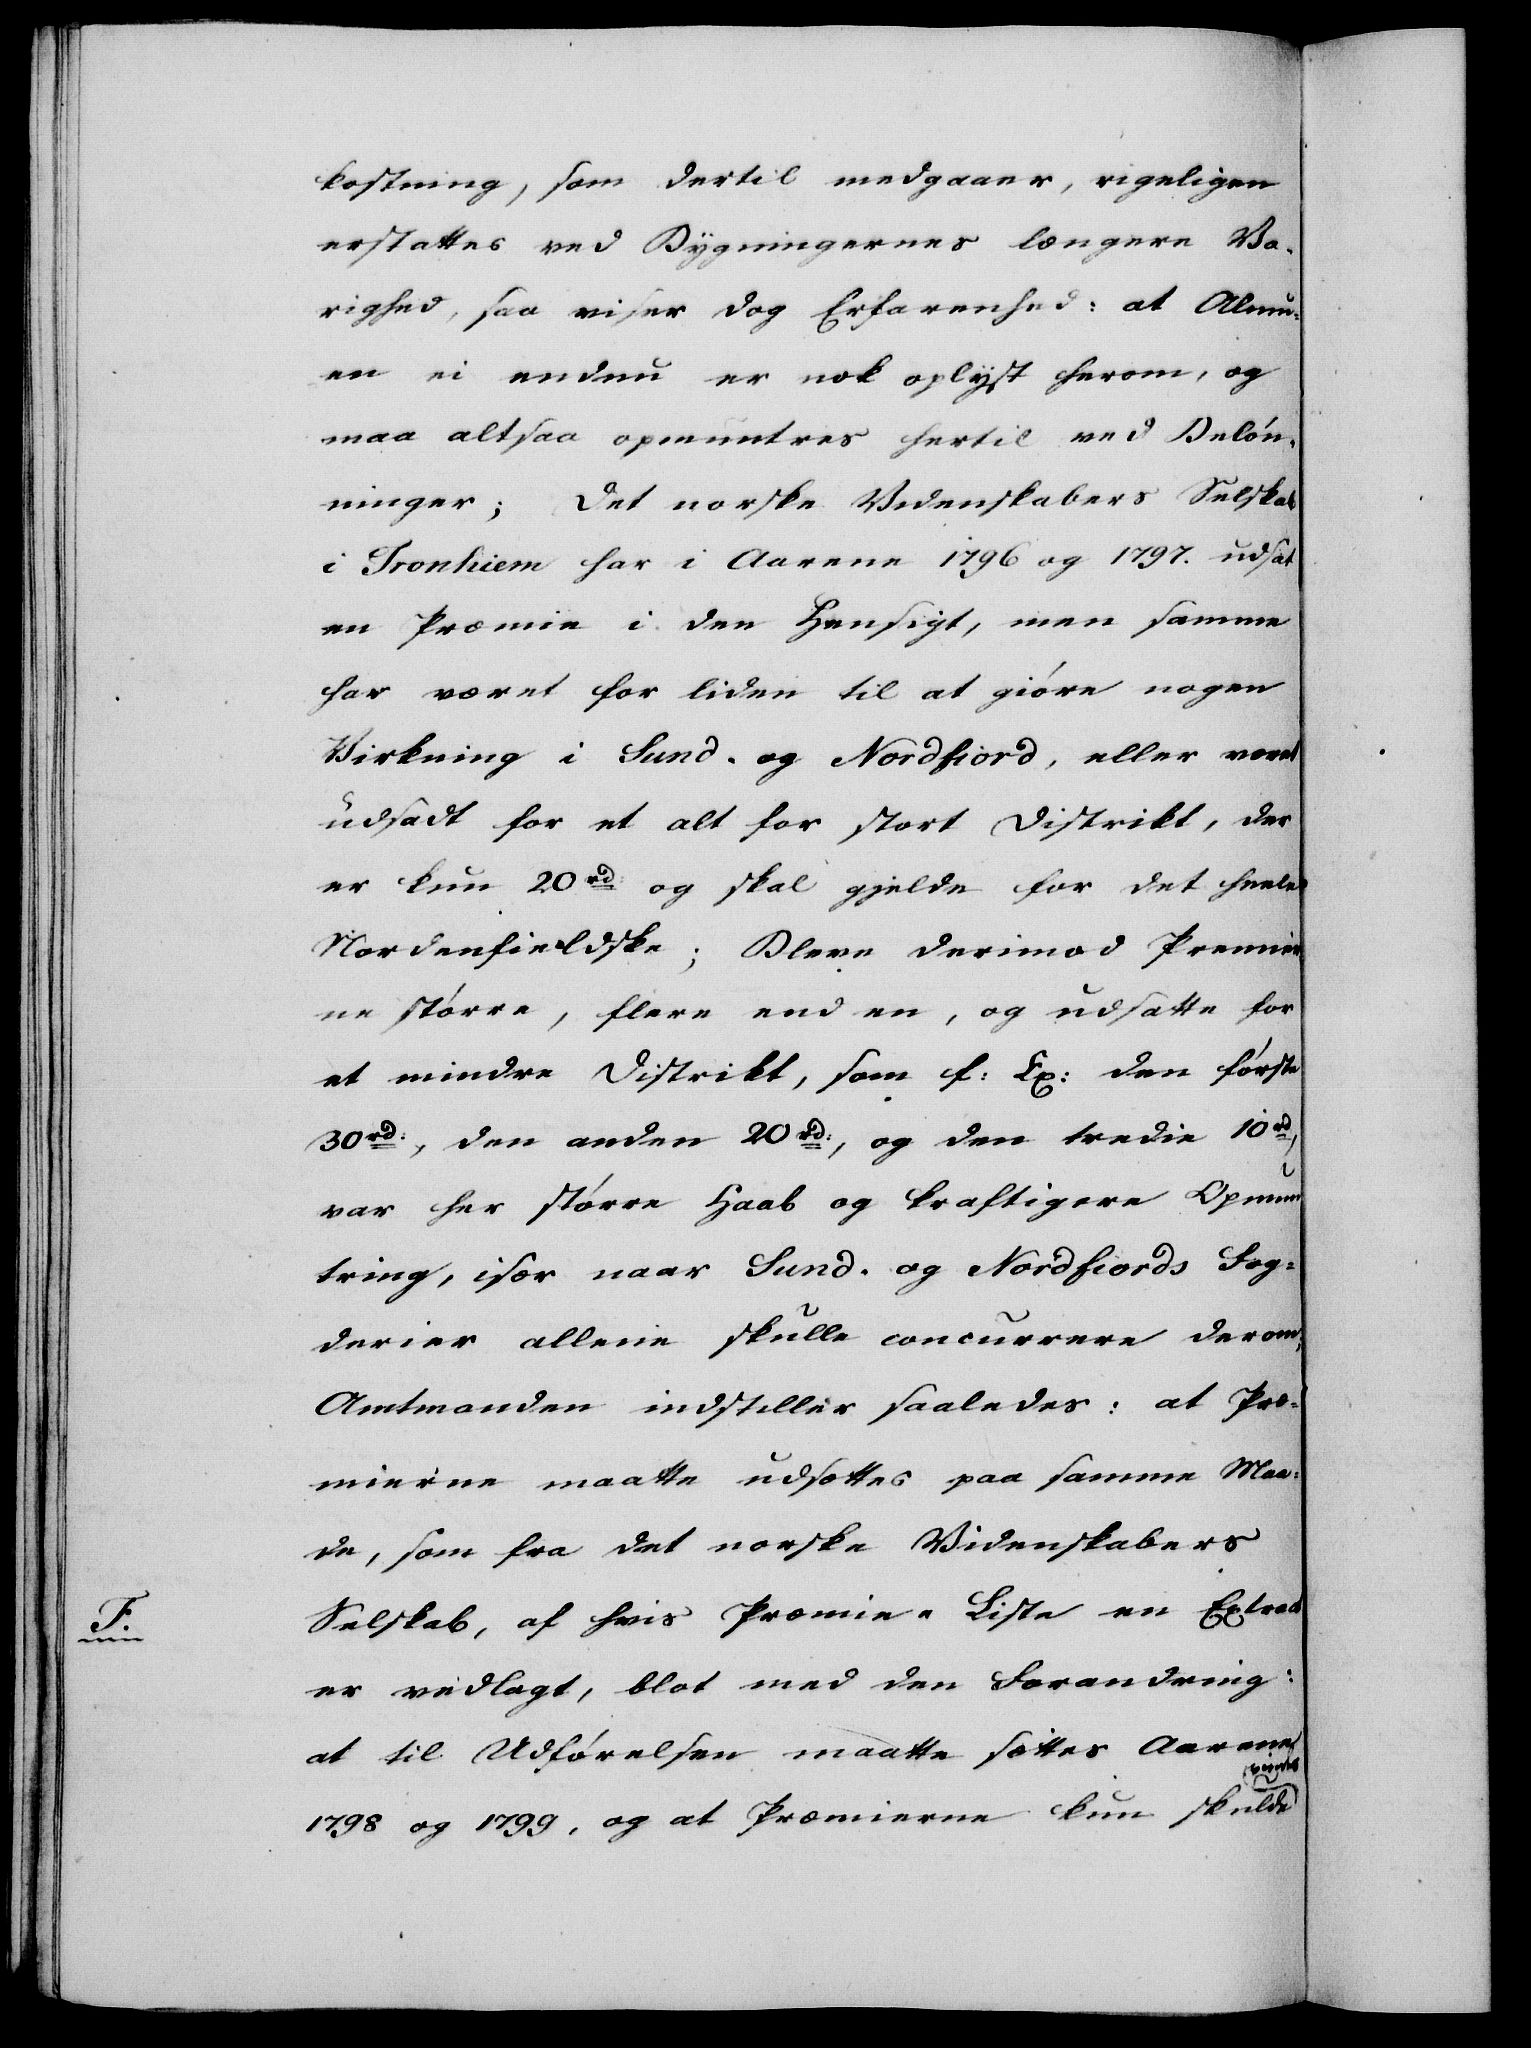 kostning, som dertil medgaaer, rigeligen
erstattes ved Bÿgningernes længere Va-
righed, saa viser dog Erfarenhed: at Almu-
en ei endnu er nok oplÿst herom, og
maa altsaa opmuntres hertil ved Belön-
ninger; Det norske Videnskabers Selskab
i Tronhiem har i Aarene 1796 og 1797. udsat
en Præmie i den Hensigt, men samme
har været for liden til at gióre nogen
Virkning i Sund- og Nordfiord, eller været
udsadt for et alt for stort District, der
er kun 20 rd: og skal gjelde for det heele
Nordenfieldske; Bleve derimod Premier
ne större, flere end en, og udsatte for
et mindre District, som f: Ex: den förste
30 rd:, den anden 20 rd:, og den tredie 10 rd,
var her större Haab og kraftigere Opmun
tring, især naar Sund- og Nordfiords Fog=
derier allene skulle concurrere derom,
Amtmanden indstiller saaledes: at Præ=
mierne maatte udsættes paa samme Maa=
de, som fra det norske Videnskabers
F. Selskab, af hvis Præmie- Liste en Extract
er vedlagt, blot med den Forandring:
at til Udförelsen maatte sættes Aarene
1798 og 1799, og at Præmierne kun skulde
vindes